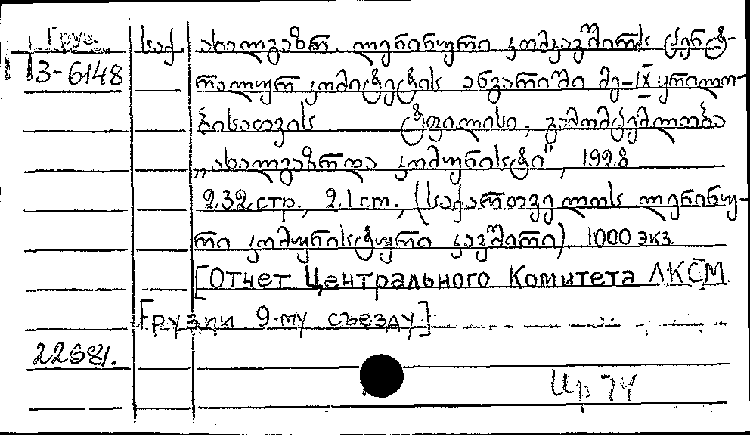 Груз.
3-6148
საქ. ახალგაზრ. ლენინური კომკავშირის ცენტ-
რალურ კომიტეტის ანგარიში მე-IX ყრილო-
ბისათვის ტფილისი, გამომცემლობა
„ახალგაზრდა კომუნისტი", 1928
232 стр., 21 cm., (საქართველოს ლენინუ-
რი კომუნისტური კავშირი) 1000 экз
[Отчет Центрального Комитета ЛКСМ
Грузии 9-му съезду]
22681.
Ир 74